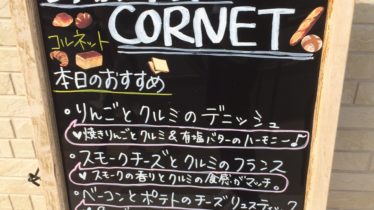 CORNET
コルネット
本日のおすすめ
・りんごとクルミのデニッシュ
♥焼きりんごとクルミ&有塩バターのハーモニー♪
・スモークチーズとクルミのフランス
♥スモークの香りとクルミの食感がマッチ。
・ベーコンとポテトのチーズリュスティック